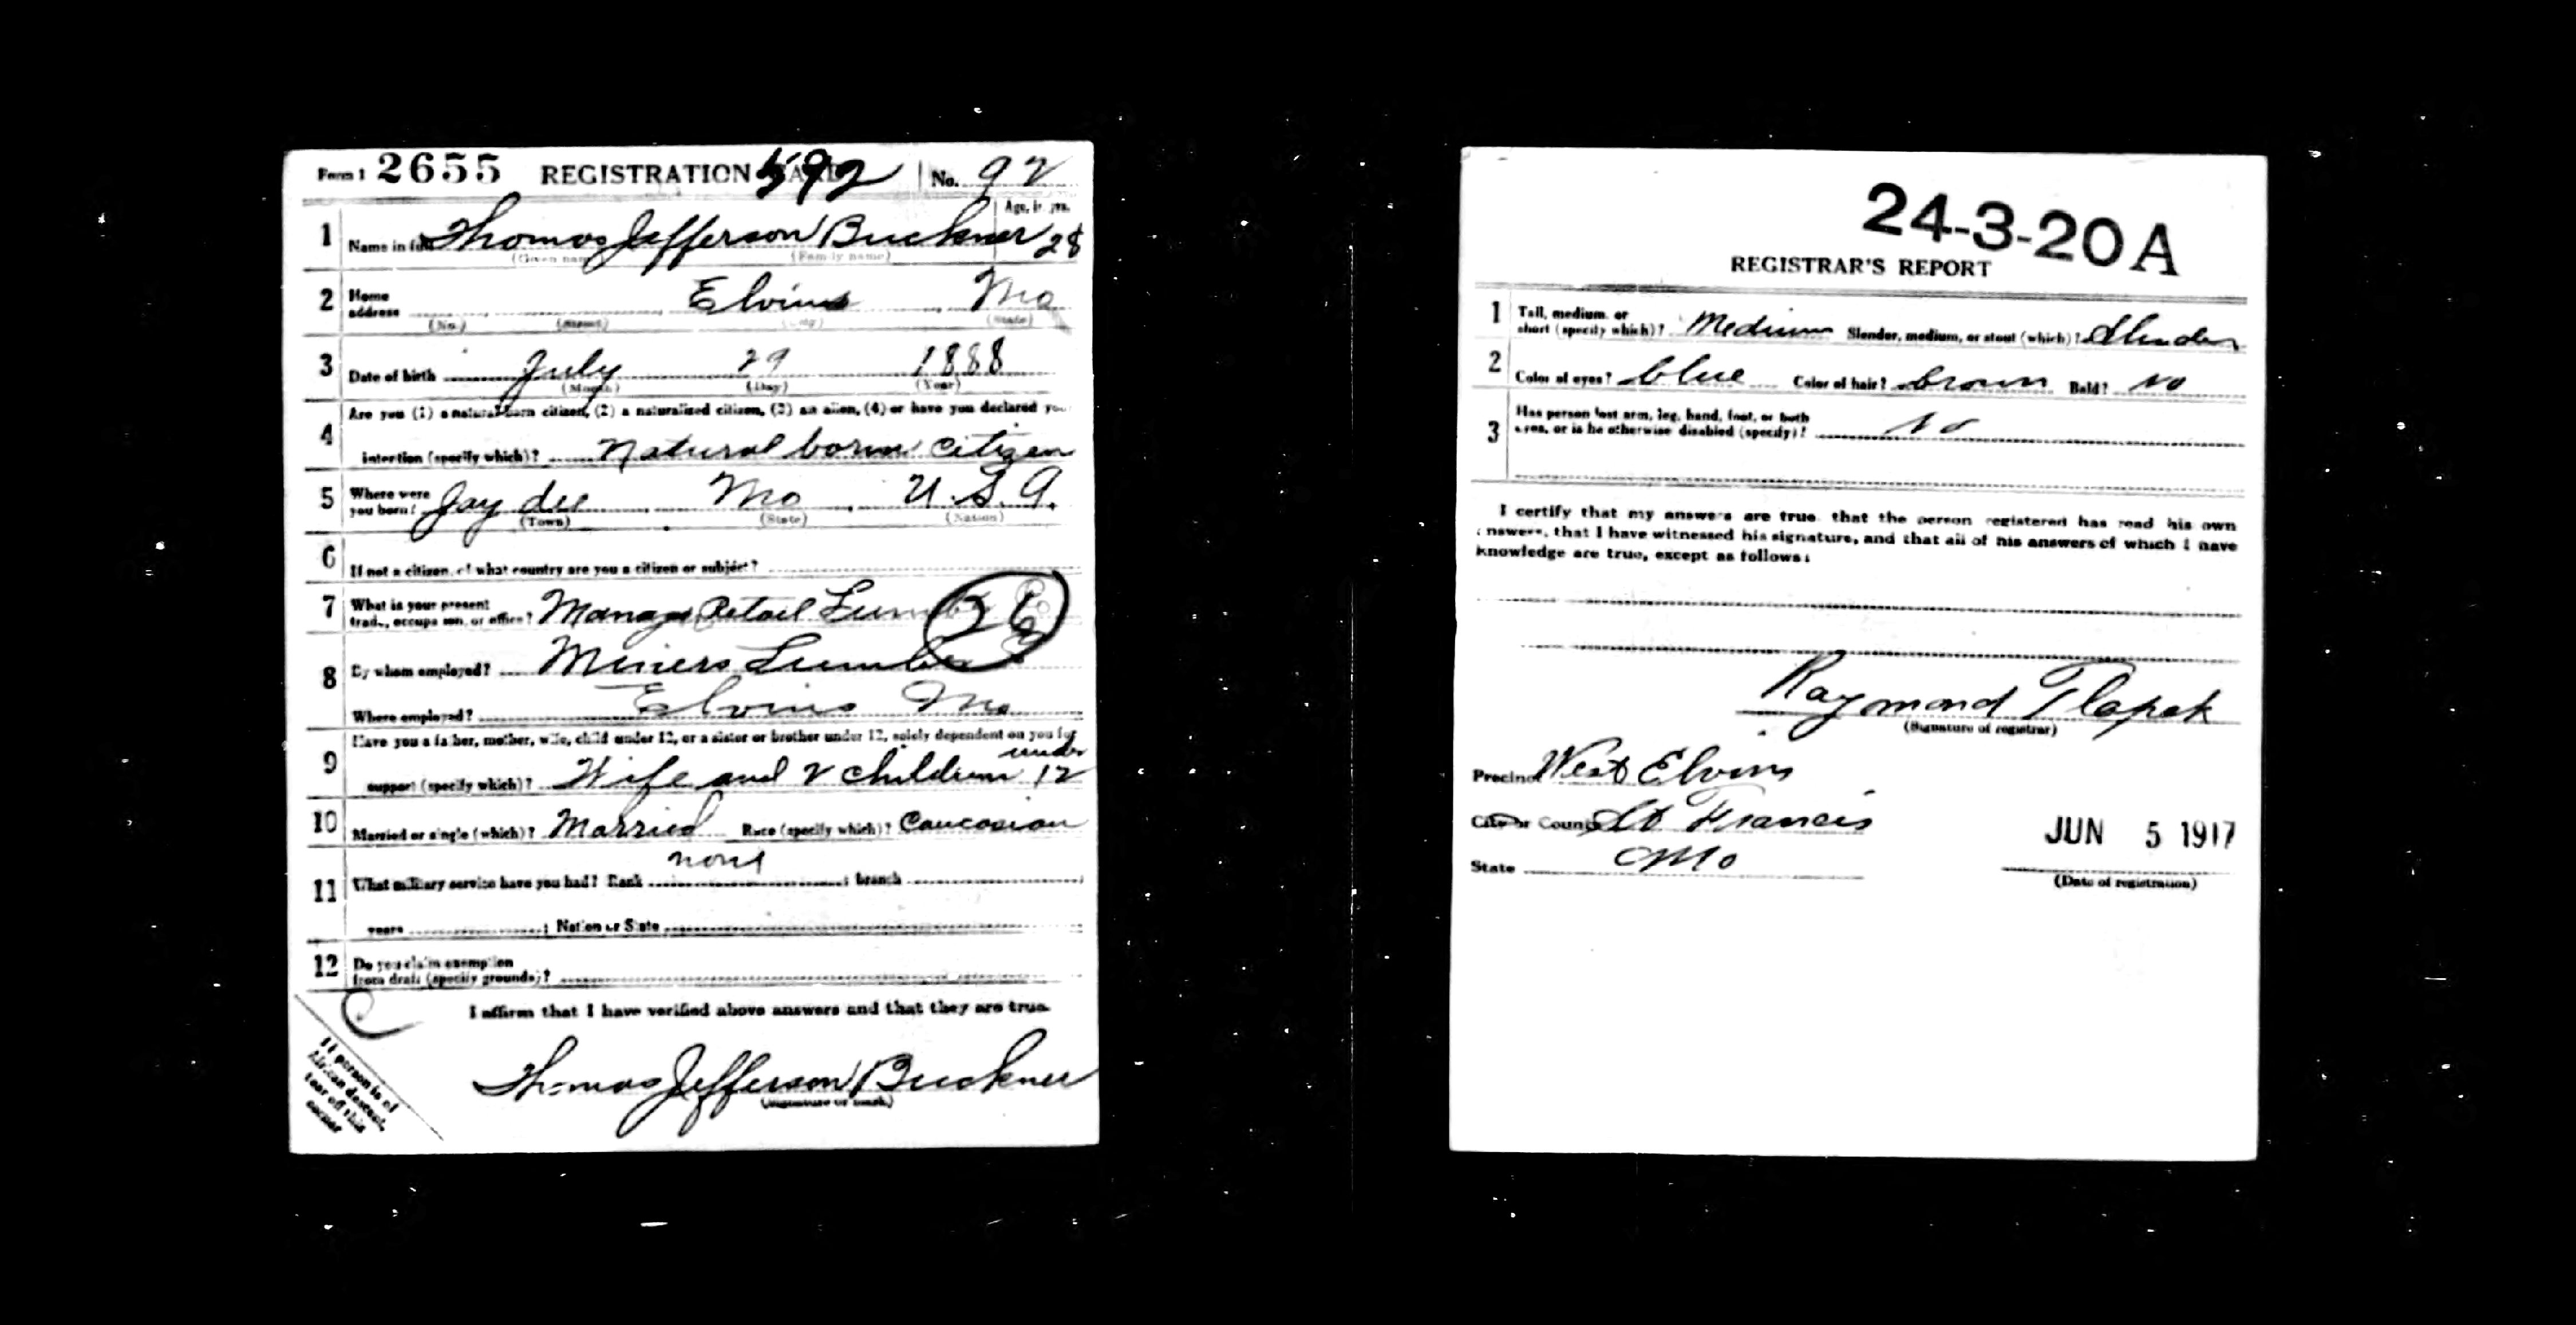 Form 1 2655 REGISTRATION 592 No. 92
Age, in yrs.
1 Name in full Thomas Jefferson Buckner 28
(Given name) (Family name)
2 Home address Elvins Mo
(No.) (Street) (City) (State)
3 Date of birth July 29 1888
(Month) (Day) (Year)
Are you (1) a natural-born citizen, (2) a naturalized citizen, (3) an alien, (4) or have you declared your
4 intention (specify which)? Natural born citizen
5 Where were you born? Jay dee Mo U.S.A.
(Town) (State) (Nation)
6 If not a citizen, of what country are you a citizen or subject?
7 What is your present trade, occupation, or office? Manage Retail 26
8 By whom employed? Miners Lumber
Elvins Mo
Where employed?
9 Have you a father, mother, wife, child under 12, or a sister or brother under 12, solely dependent on you for
under
support (specify which)? Wife and 2 children 12
10 Married or single (which)? Married Race (specify which)? Caucasian
none
11 What military service have you had? Rank ; branch ;
years ; Nation or State
12 Do you claim exemption
from draft (specify grounds)?
I affirm that I have verified above answers and that they are true.
Thomas Jefferson Buckner
(Signature or mark)
If person is of
African descent,
tear off this
corner
24-3-20 A
REGISTRAR'S REPORT
1 Tall, medium, or
short (specify which)? Medium Slender, medium, or stout (which)? Slender
2 Color of eyes? blue Color of hair? brown Bald? No
3 Has person lost arm, leg, hand, foot, or both
eyes, or is he otherwise disabled (specify)? No
I certify that my answers are true, that the person registered has read his own
answers, that I have witnessed his signature, and that all of his answers of which I have
knowledge are true, except as follows:
Raymond Tlapek
(Signature of registrar)
Precinct West Elvins
City or County St Francis
State Mo
JUN 5 1917
(Date of registration)